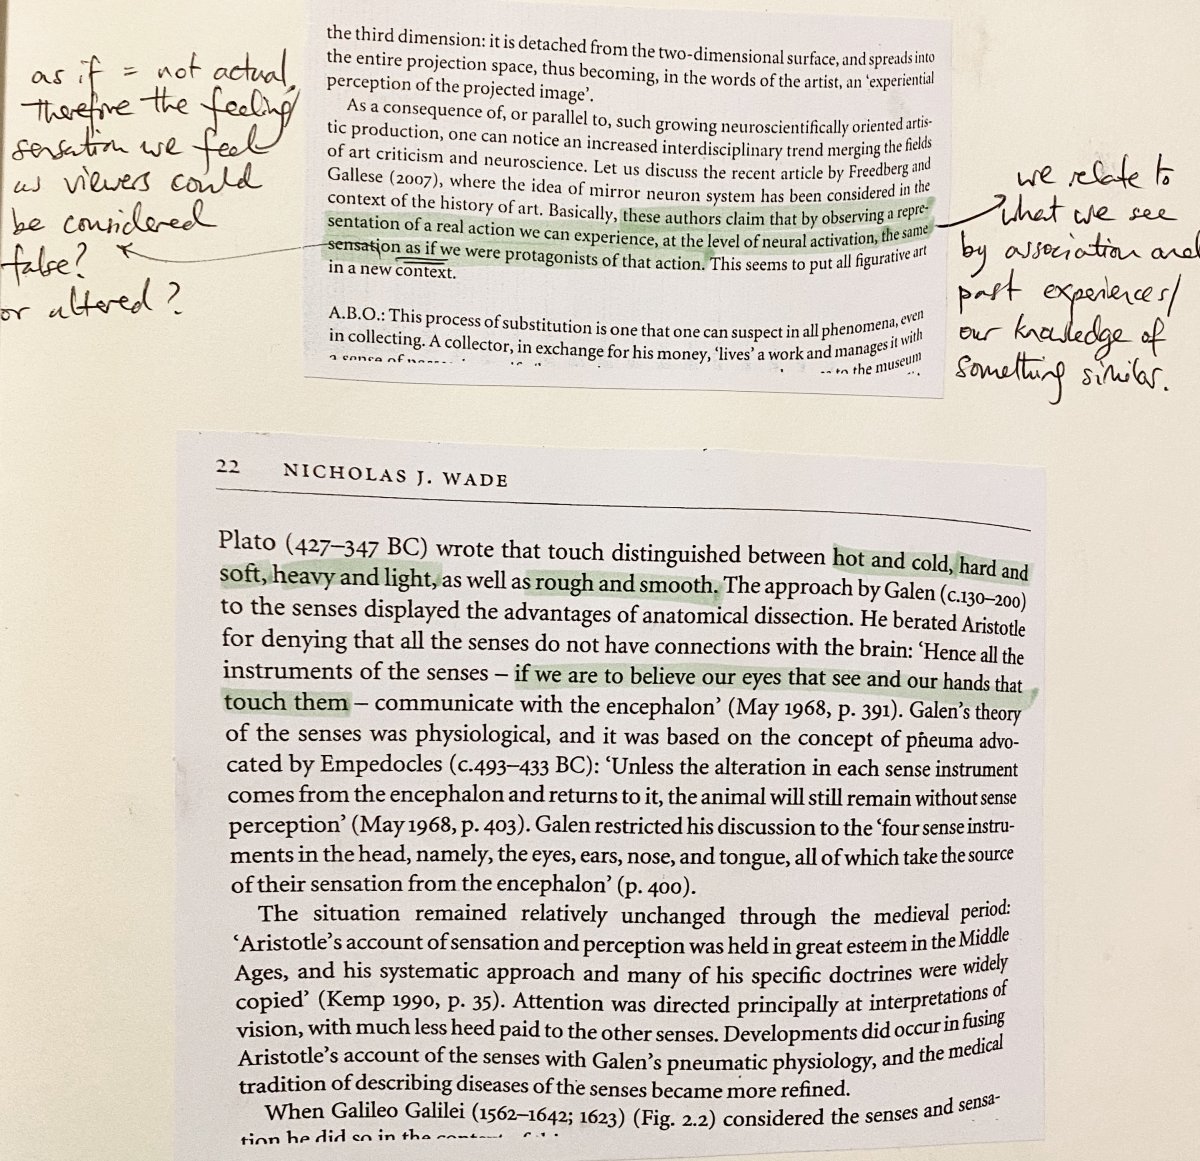 as if = not actual,
therefore the feeling/
sensation we feel
as viewers could
be considered
false?
or altered?
the third dimension: it is detached from the two-dimensional surface, and spreads into
the entire projection space, thus becoming, in the words of the artist, an ‘experiential
perception of the projected image’.
As a consequence of, or parallel to, such growing neuroscientifically oriented artis-
tic production, one can notice an increased interdisciplinary trend merging the fields
of art criticism and neuroscience. Let us discuss the recent article by Freedberg and
Gallese (2007), where the idea of mirror neuron system has been considered in the
context of the history of art. Basically, these authors claim that by observing a repre-
sentation of a real action we can experience, at the level of neural activation, the same
sensation as if we were protagonists of that action. This seems to put all figurative art
in a new context.
A.B.O.: This process of substitution is one that one can suspect in all phenomena, even
in collecting. A collector, in exchange for his money, ‘lives’ a work and manages it with
a sense of to the museum
we relate to
what we see
by association and
past experiences/
our knowledge of
something similar.
22 NICHOLAS J. WADE
Plato (427–347 BC) wrote that touch distinguished between hot and cold, hard and
soft, heavy and light, as well as rough and smooth. The approach by Galen (c.130–200)
to the senses displayed the advantages of anatomical dissection. He berated Aristotle
for denying that all the senses do not have connections with the brain: ‘Hence all the
instruments of the senses – if we are to believe our eyes that see and our hands that
touch them – communicate with the encephalon’ (May 1968, p. 391). Galen’s theory
of the senses was physiological, and it was based on the concept of pneuma advo-
cated by Empedocles (c.493–433 BC): ‘Unless the alteration in each sense instrument
comes from the encephalon and returns to it, the animal will still remain without sense
perception’ (May 1968, p. 403). Galen restricted his discussion to the ‘four sense instru-
ments in the head, namely, the eyes, ears, nose, and tongue, all of which take the source
of their sensation from the encephalon’ (p. 400).
The situation remained relatively unchanged through the medieval period:
‘Aristotle’s account of sensation and perception was held in great esteem in the Middle
Ages, and his systematic approach and many of his specific doctrines were widely
copied’ (Kemp 1990, p. 35). Attention was directed principally at interpretations of
vision, with much less heed paid to the other senses. Developments did occur in fusing
Aristotle’s account of the senses with Galen’s pneumatic physiology, and the medical
tradition of describing diseases of the senses became more refined.
When Galileo Galilei (1562–1642; 1623) (Fig. 2.2) considered the senses and sensa-
tion he did so in the